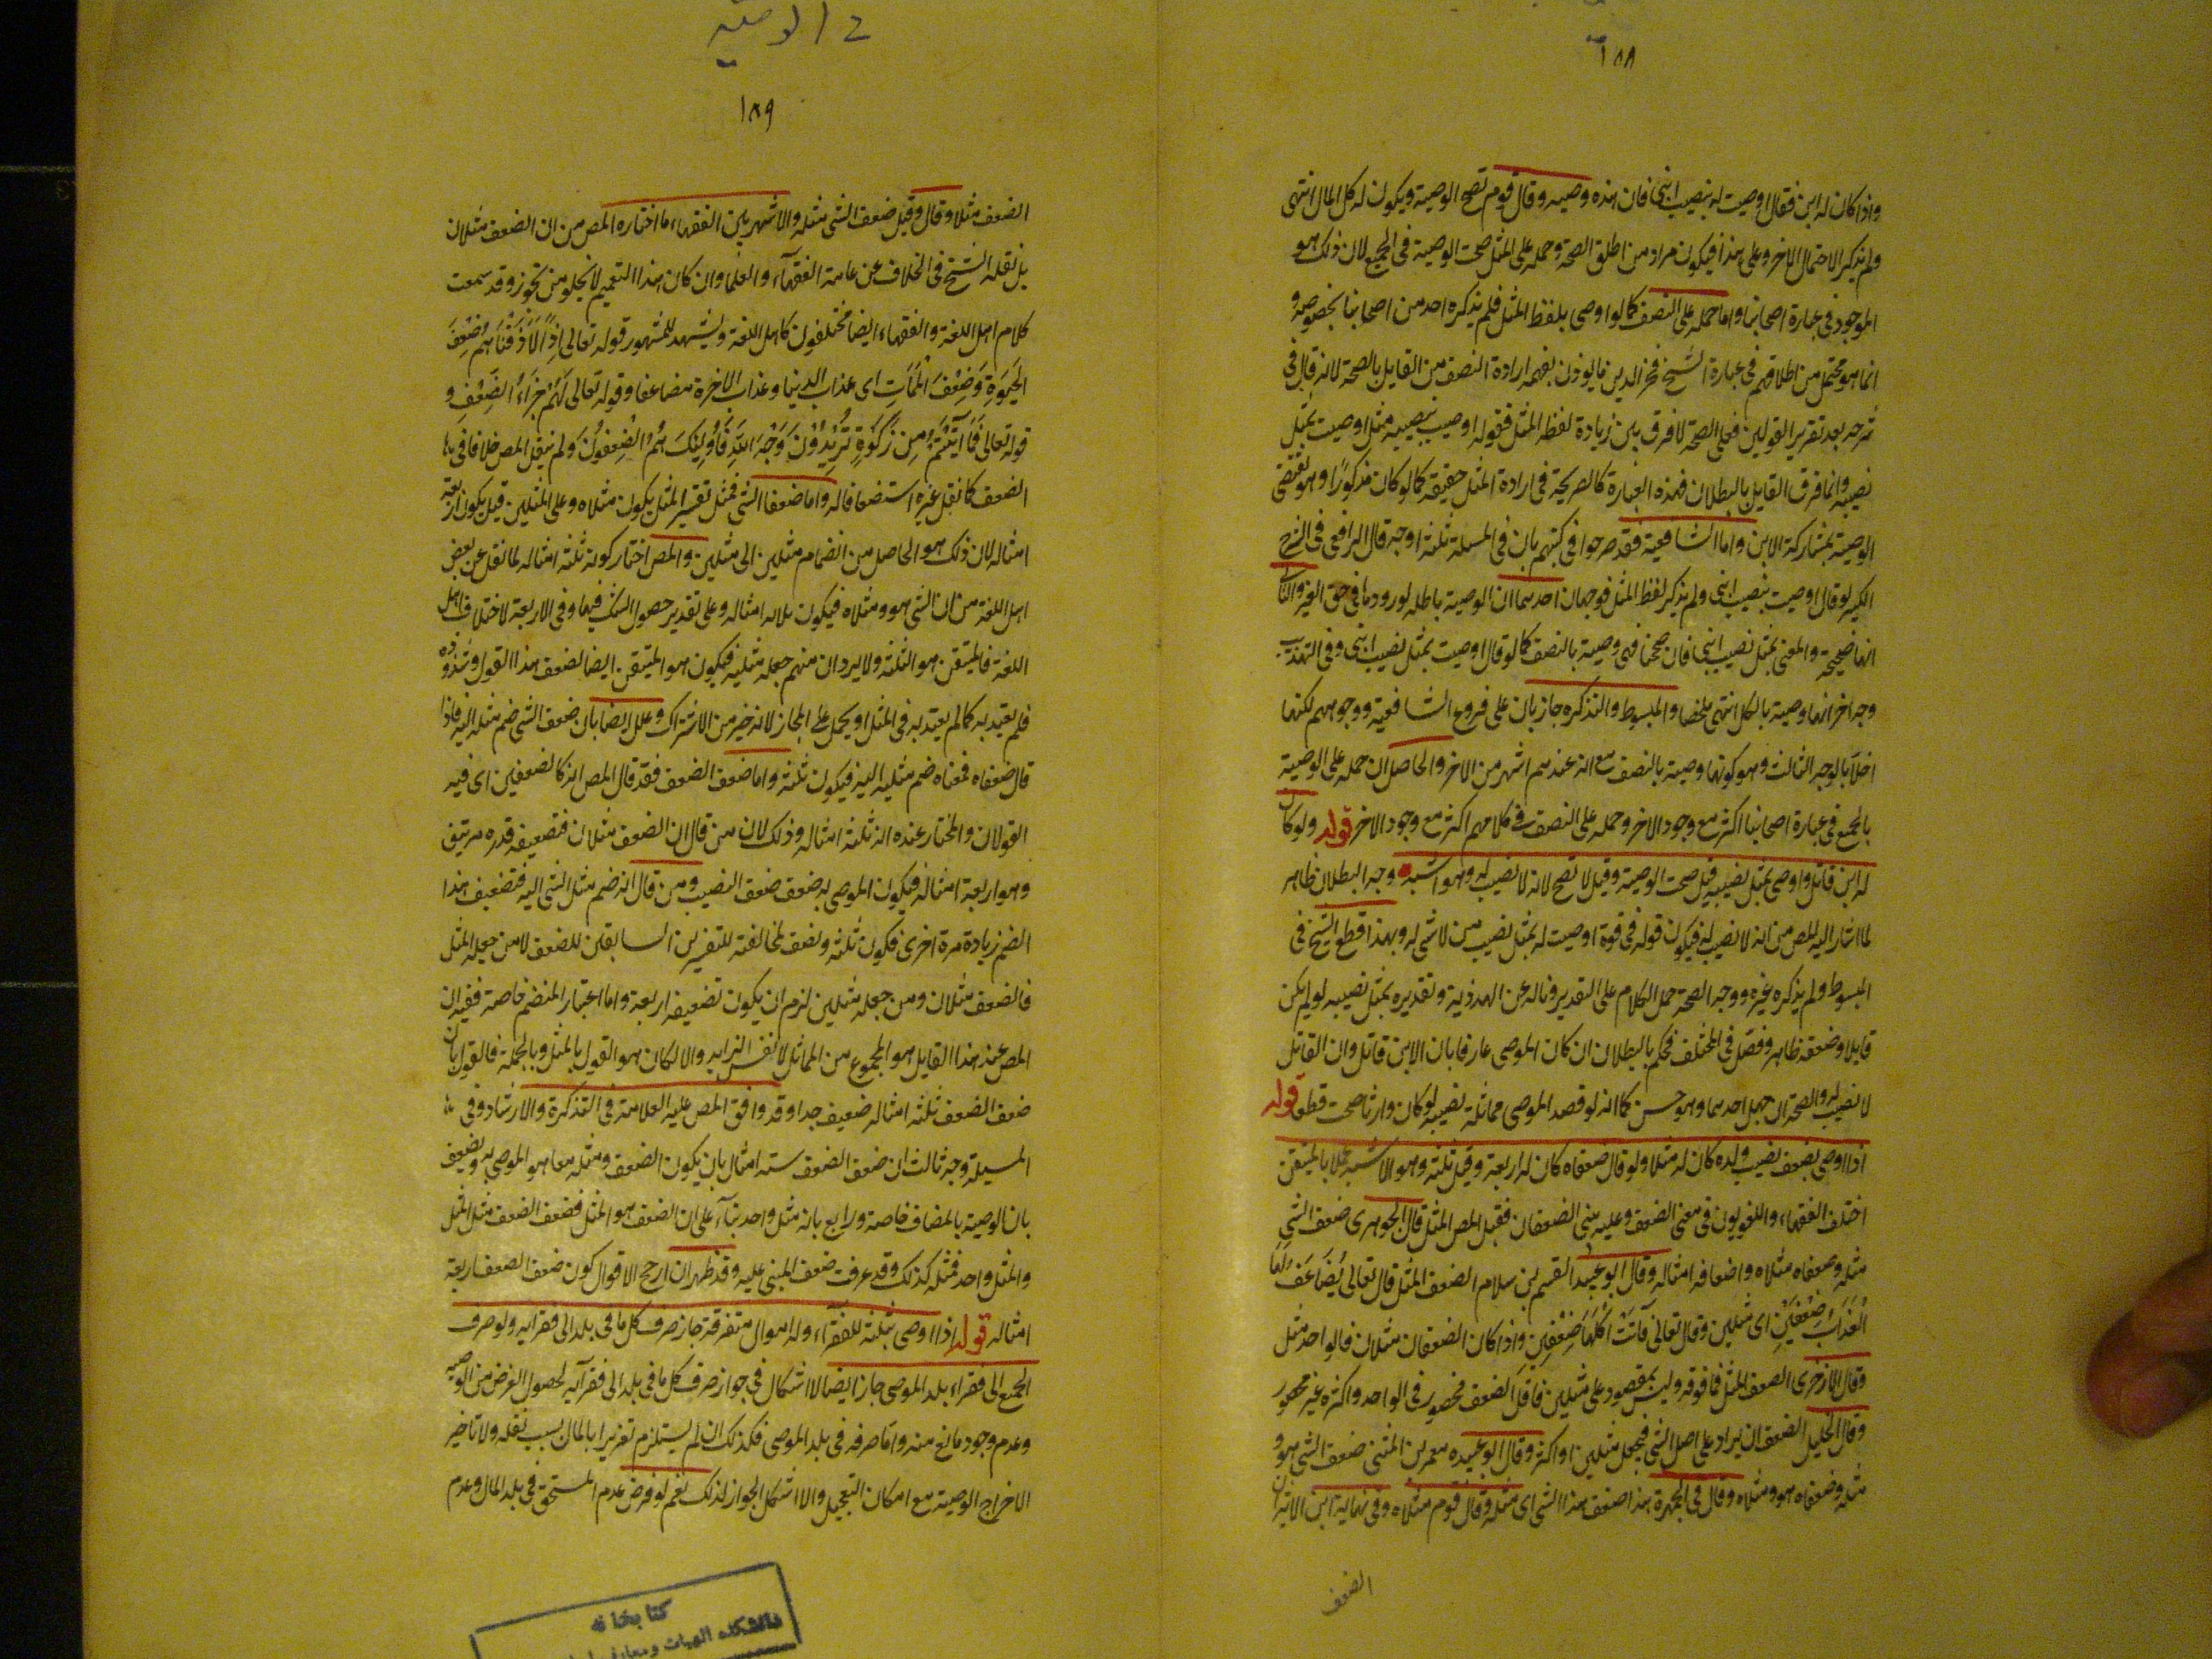 ١٨٨
واذا كان له ابن فقال اوصيت له بنصيب ابنى فان هذه وصيه وقال قوم تصح الوصية ويكون له كل المال انتهى
ولم يذكر الاحتمال الاخر وعلى هذا فيكون مراد من اطلق الصحة وحمله على المثل صحت الوصية فى الجميع لان ذلك هو
الموجود فى عبارة اصحابنا واما حمله على النصف كما لو اوصى بلفظ المثل فلم يذكره احد من اصحابنا بخصوصه و
انما هو محتمل من اطلاقهم فى عبارة الشيخ فخر الدين ما يوذن بفهمه ارادة النصف من القايل بالصحة لانه قال فى
شرحه بعد تقرير القولين فعلى الصحة لا فرق بين زيادة لفظ المثل فقوله اوصيت بنصيبه مثل اوصيت بمثل
نصيبه وانما فرق القايل بالبطلان فهذه العبارة كالصريحة فى ارادة المثل حقيقة كما لو كان مذكورًا وهو يقتضى
الوصية بمشاركة الابن واما الشافعية فقد صرحوا فى كتبهم بان فى المسيلة ثلثة اوجه قال الرافعى فى الشرح
الكبير لو قال اوصيت بنصيب ابنى ولم يذكر لفظ المثل فوجهان احدهما ان الوصية باطله لورودها فى حق الغير والثانى
انها صحيحة والمعنى بمثل نصيب ابنى فان صححنا فهى وصية بالنصف كما لو قال اوصيت بمثل نصيب ابنى وفى التهذيب
وجه اخر انها وصية بالكل انتهى ملخصا والمبسوط والتذكره جاريان على فروع الشافعية ووجوههم لكنهما
اخلا بالوجه الثالث وهو كونها وصية بالنصف مع انه عندهم اشهر من الاخر والحاصل ان حمله على الوصية
بالجميع فى عبارة اصحابنا اكثر مع وجود الاخر وحمله على النصف فى كلامهم اكثر مع وجود الاخر قوله ولو كان
له ابن قاتل واوصى بمثل نصيبه قيل صحت الوصية وقيل لا تصح لانه لا نصيب له وهو اشبه وجه البطلان ظاهر
لما اشار اليه المص من انه لا نصيب له فيكون قوله فى قوة اوصيت له بمثل نصيب من لا شى له وبهذا قطع الشيخ فى
المبسوط ولم يذكره غيره ووجه الصحة حمل الكلام على التقدير وناله عن الهذرية وتقديره بمثل نصيبه لو لم يكن
قاتلا وضعفه ظاهر وفصل فى المختلف فحكم بالبطلان ان كان الموصى عارفا بان الابن قاتل وان القاتل
لا نصيب له والصحة ان جهل احدهما وهو حسن كما انه لو قصد الموصى مماثلة نصيبه لو كان وارثا صحت قطعا قوله
اذا اوصى بضعف نصيب ولده كان له مثلا ولو قال ضعفاه كان له اربعة وقيل ثلثة وهو الاشبه اخذا بالمتيقن
اختلف الفقهاء واللغويون فى معنى الضعف وعليه بنى الضعفان فقيل المص المثل قال الجوهرى ضعف الشى
مثله وضعفاه مثلاه واضعافه امثاله وقال ابو عبيد القسم بن سلام الضعف المثل قال تعالى يُضَاعَف لها
الْعَذَابُ ضِعْفَيْنِ اى مثلين وقال تعالى فَآتَتْ اُكُلَهَا ضِعْفَيْنِ واذا كان الضعفان مثلان فالواحد مثل
وقال الازهرى الضعف المثل فما فوقه وليس بمقصود على مثلين فاقل الضعف محصور فى الواحد واكثره غير محصور
وقال الخليل الضعف ان يراد على اصل الشى فيجعل مثلين او اكثر وقال ابو عبيده معمر بن المثنى ضعف الشى هو و
مثله وضعفاه هو ومثلاه وقال فى الجمهرة هذا ضعف هذا الشى اى مثله وقال قوم مثلاه وفى نهاية ابن الاثير ان
الضعف
فى الوصيه
١٨٩
الضعف مثلا وقال وقيل ضعف الشى مثله والاشهر بين الفقهاء ما اختاره المص من ان الضعف مثلان
بل نقله الشيخ فى الخلاف عن عامة الفقهاء والعلما وان كان هذا التعميم لا يخلو من تجوز وقد سمعت
كلام اهل اللغة والفقهاء ايضا مختلفون كاهل اللغة ويشهد للمشهور قوله تعالى إِذًا لَاَذَقْنَاهُمْ ضِعْفَ
الْحَيٰوةِ وَضِعْفَ الْمَمَاتِ اى عذاب الدنيا وعذاب الاخرة مضاعفا وقوله تعالى لَهُمْ جَزَاءُ الضِّعْفِ و
قوله تعالى فَمَا اٰتَيْتُمْ مِنْ زَكٰوةٍ تُرِيْدُوْنَ وَجْهَ اللهِ فَاُولٰئِكَ هُمُ الْمُضْعِفُوْنَ ولم ينقل المص خلافا فى
الضعف كما نقل غيره استضعافا له واما ضعفا الشى فمثل تفسير المثل يكون مثلاه وعلى المثلين قيل يكون اربعة
امثاله لان ذلك هو الحاصل من انضمام مثلين الى مثلين والمص اختار كونه ثلثة امثاله لما نقل عن بعض
اهل اللغة من ان الشى هو ومثلاه فيكون ثلاثه امثاله وعلى تقدير حصول الشك فيهما وفى الاربعة لاختلاف اهل
اللغة فالمتيقن هو الثلثة ولا يرد ان منهم جعله مثليه فيكون هو المتيقن ايضا لضعف هذا القول وشذوذه
فلم يعتد به كما لم يعتد به فى المثل او يحمل على المجاز لانه خير من الاشتراك وعلل ايضا بان ضعف الشى ضم مثله اليه فاذا
قال ضعفاه فمعناه ضم مثليه اليه فيكون ثلثة واما ضعف الضعف فقد قال المص انه كالضعفين اى فيه
القولان والمختار عنده انه ثلثة امثاله وذلك لان من قال ان الضعف مثلان فتضعيفه قدره مرتين
وهو اربعة امثاله فيكون الموصى به ضعف ضعف النصيب ومن قال انه ضم مثل الشى اليه فتضعيف هذا
الضم زيادة مرة اخرى فيكون ثلثة وضعف لمخالفته للتفسيرين السابقين للضعف لان من جعله المثل
فالضعف مثلان ومن جعله مثلين لزم ان يكون تضعيفه اربعة واما اعتبار المنضم خاصة ففيه ان
المص عند هذا القايل هو المجموع من المماثل لا نفس الزايد والا لكان هو القول بالمثل وبالجملة فالقول بان
ضعف الضعف ثلثه امثاله ضعيف جدا وقد وافق المص عليه العلامة فى التذكرة والارشاد وفى
المسيلة وجه ثالث ان ضعف الضعف سته امثال بان يكون الضعف ومثله معا هو الموصى به ويضعف
بان الوصية بالمضاف خاصة ورابع بانه مثل واحد بنآء على ان الضعف هو المثل فضعف الضعف مثل المثل
والمثل واحد فمثله كذلك وقد عرفت ضعف المبنى عليه وقد ظهر ان ارجح الاقوال كون ضعف الضعف اربعة
امثاله قوله اذا اوصى بثلثه للفقرآء وله اموال متفرقة جاز صرف كل ما فى بلد الى فقرائه ولو صرف
الجميع الى فقراء بلد الموصى جاز ايضا لا اشكال فى جواز صرف كل ما فى بلد الى فقرآئه لحصول الغرض من الوصيه
وعدم وجود مانع منه واما صرفه فى بلد الموصى فكذلك ان لم يستلزم تغريرا بالمال بسبب نقله ولا تاخير
الاخراج الوصية مع امكان التعجيل والا اشكل الجواز لذلك نعم لو فرض عدم المستحق فى بلد المال وعدم
كتابخانه
دانشكده الهيات ومعارف